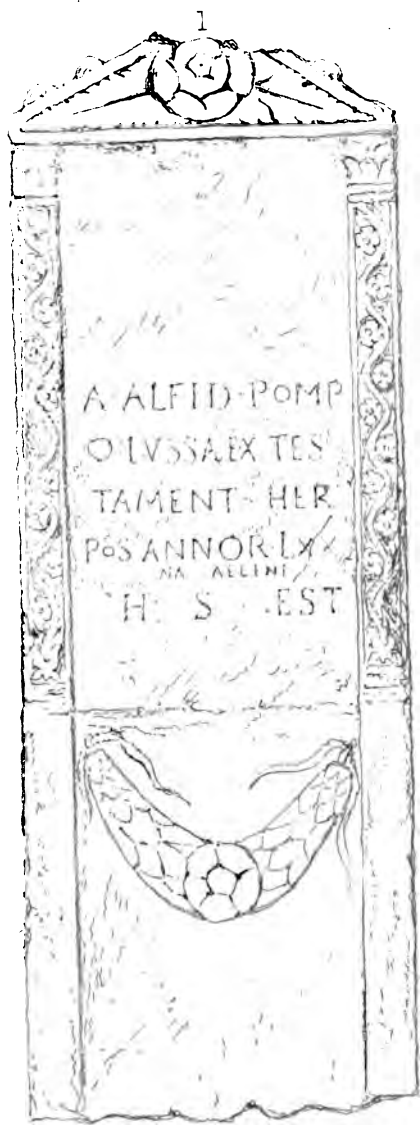 1
A ALFID · POMP
O IVSSA EX TES
TAMENT · HER
POS ANNOR LXX
NA ALLINI
H S EST